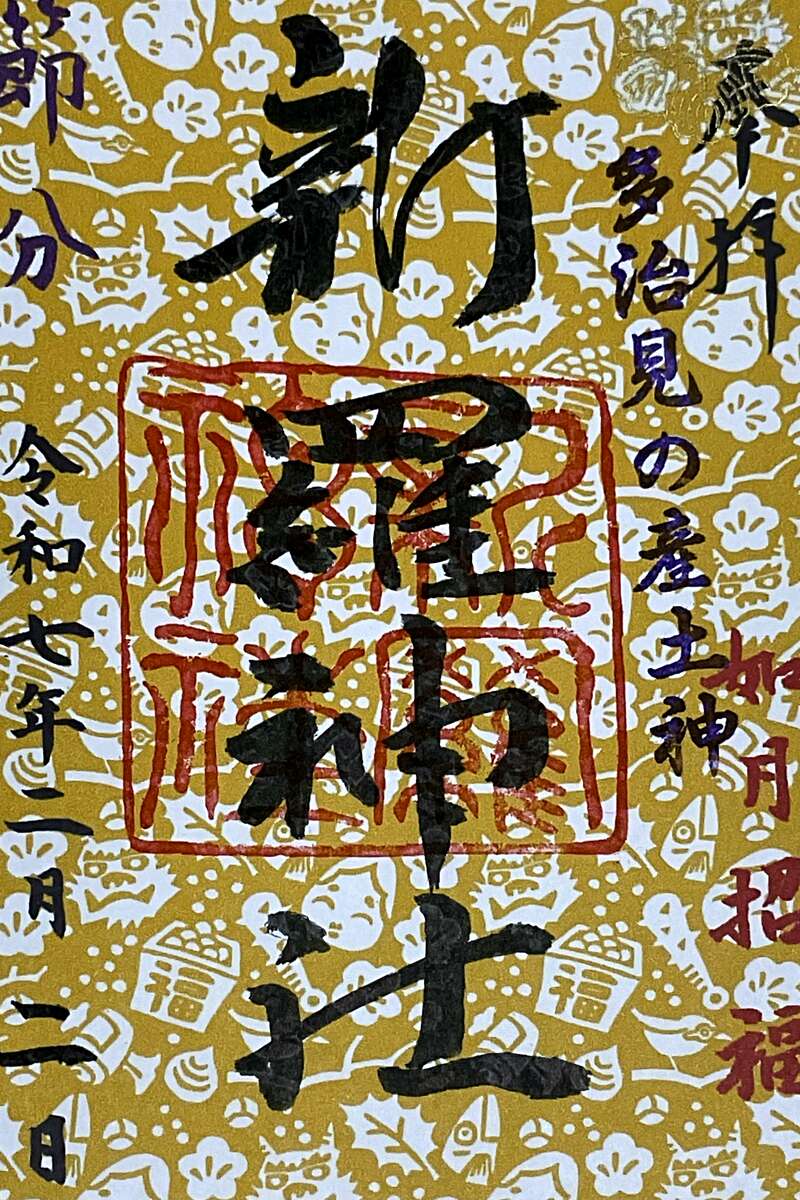 奉拝
多治見の産土神
如月招福
新羅神社
節分
令和七年二月二日
福
福
福